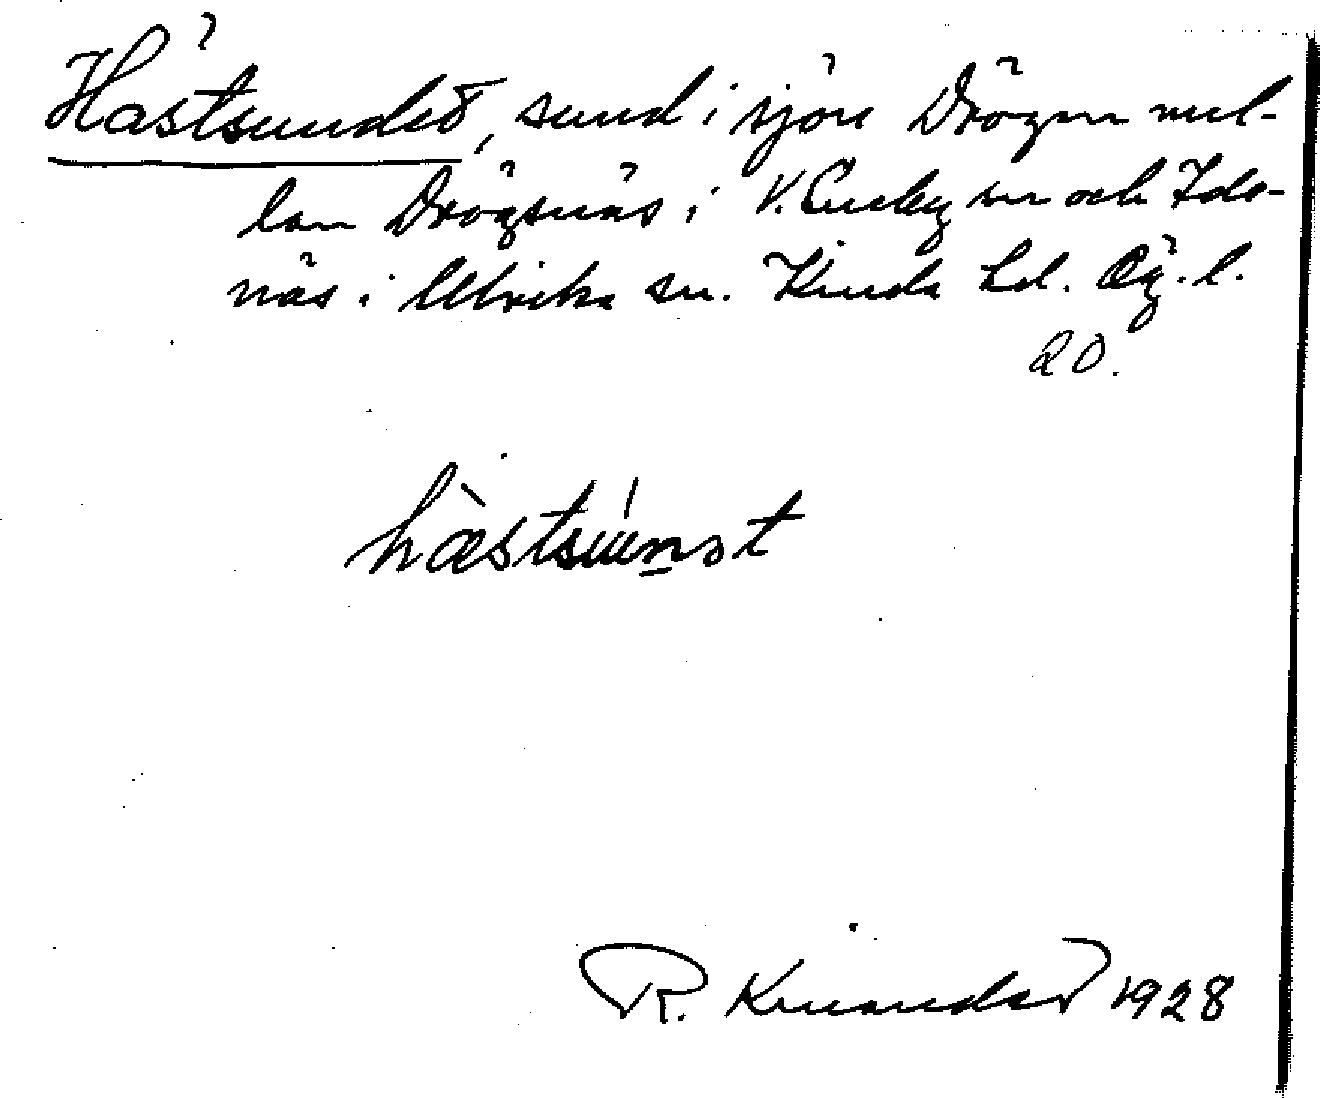 Hästsundet, sund i sjön Drögen mel-
lan Drögsnäs i V. Eneby sn och Ids-
näs i Ulrika sn. Kinda hd. Ög. l.
20.
hæstsunət
R. Kinander 1928